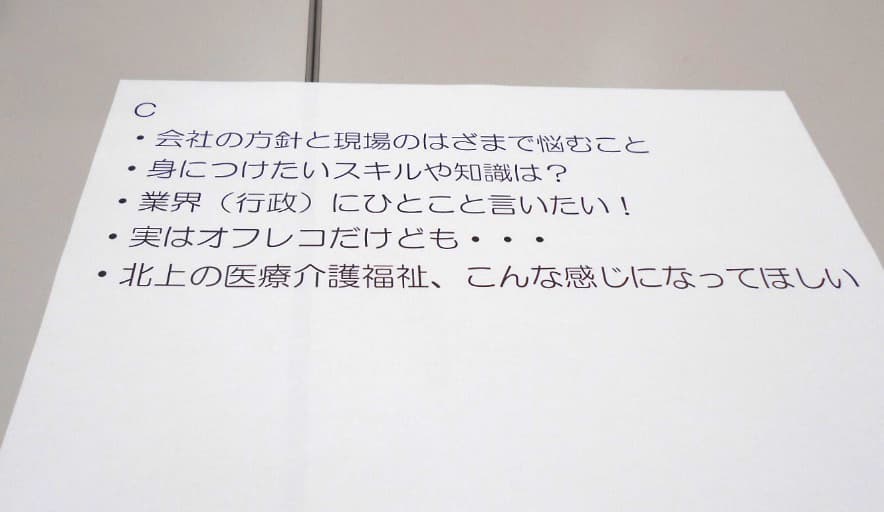 C
・会社の方針と現場のはざまで悩むこと
・身につけたいスキルや知識は？
・業界（行政）にひとこと言いたい！
・実はオフレコだけども・・・
・北上の医療介護福祉、こんな感じになってほしい